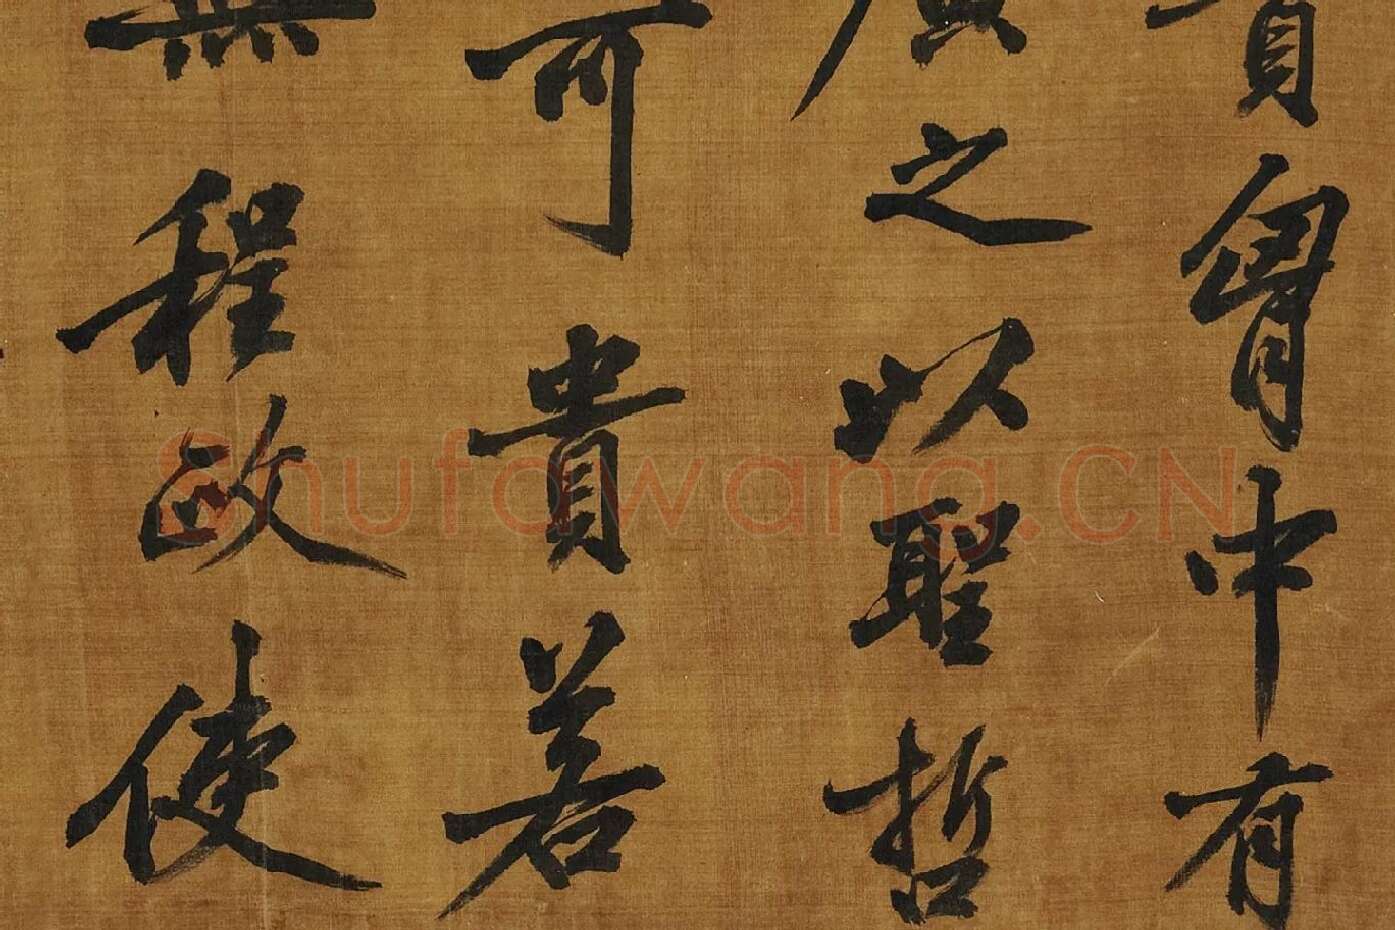 胷中有
廣之以聖哲
可貴若
無程政使
Shufawang.CN